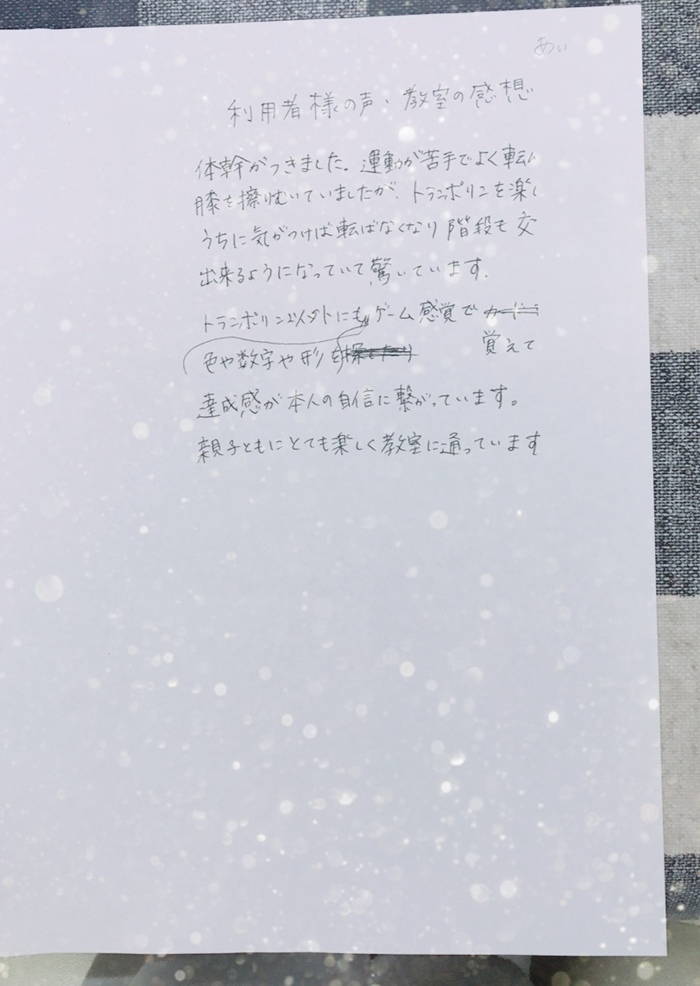 あい
利用者様の声、教室の感想
体幹がつきました。運動が苦手でよく転
膝を擦りむいていましたが、トランポリンを楽し
うちに気がつけば転ばなくなり階段も交
出来るようになっていて驚いています。
トランポリン以外にもゲーム感覚で
色や数字や形を 覚えて
達成感が本人の自信に繋がっています。
親子ともにとても楽しく教室に通っています